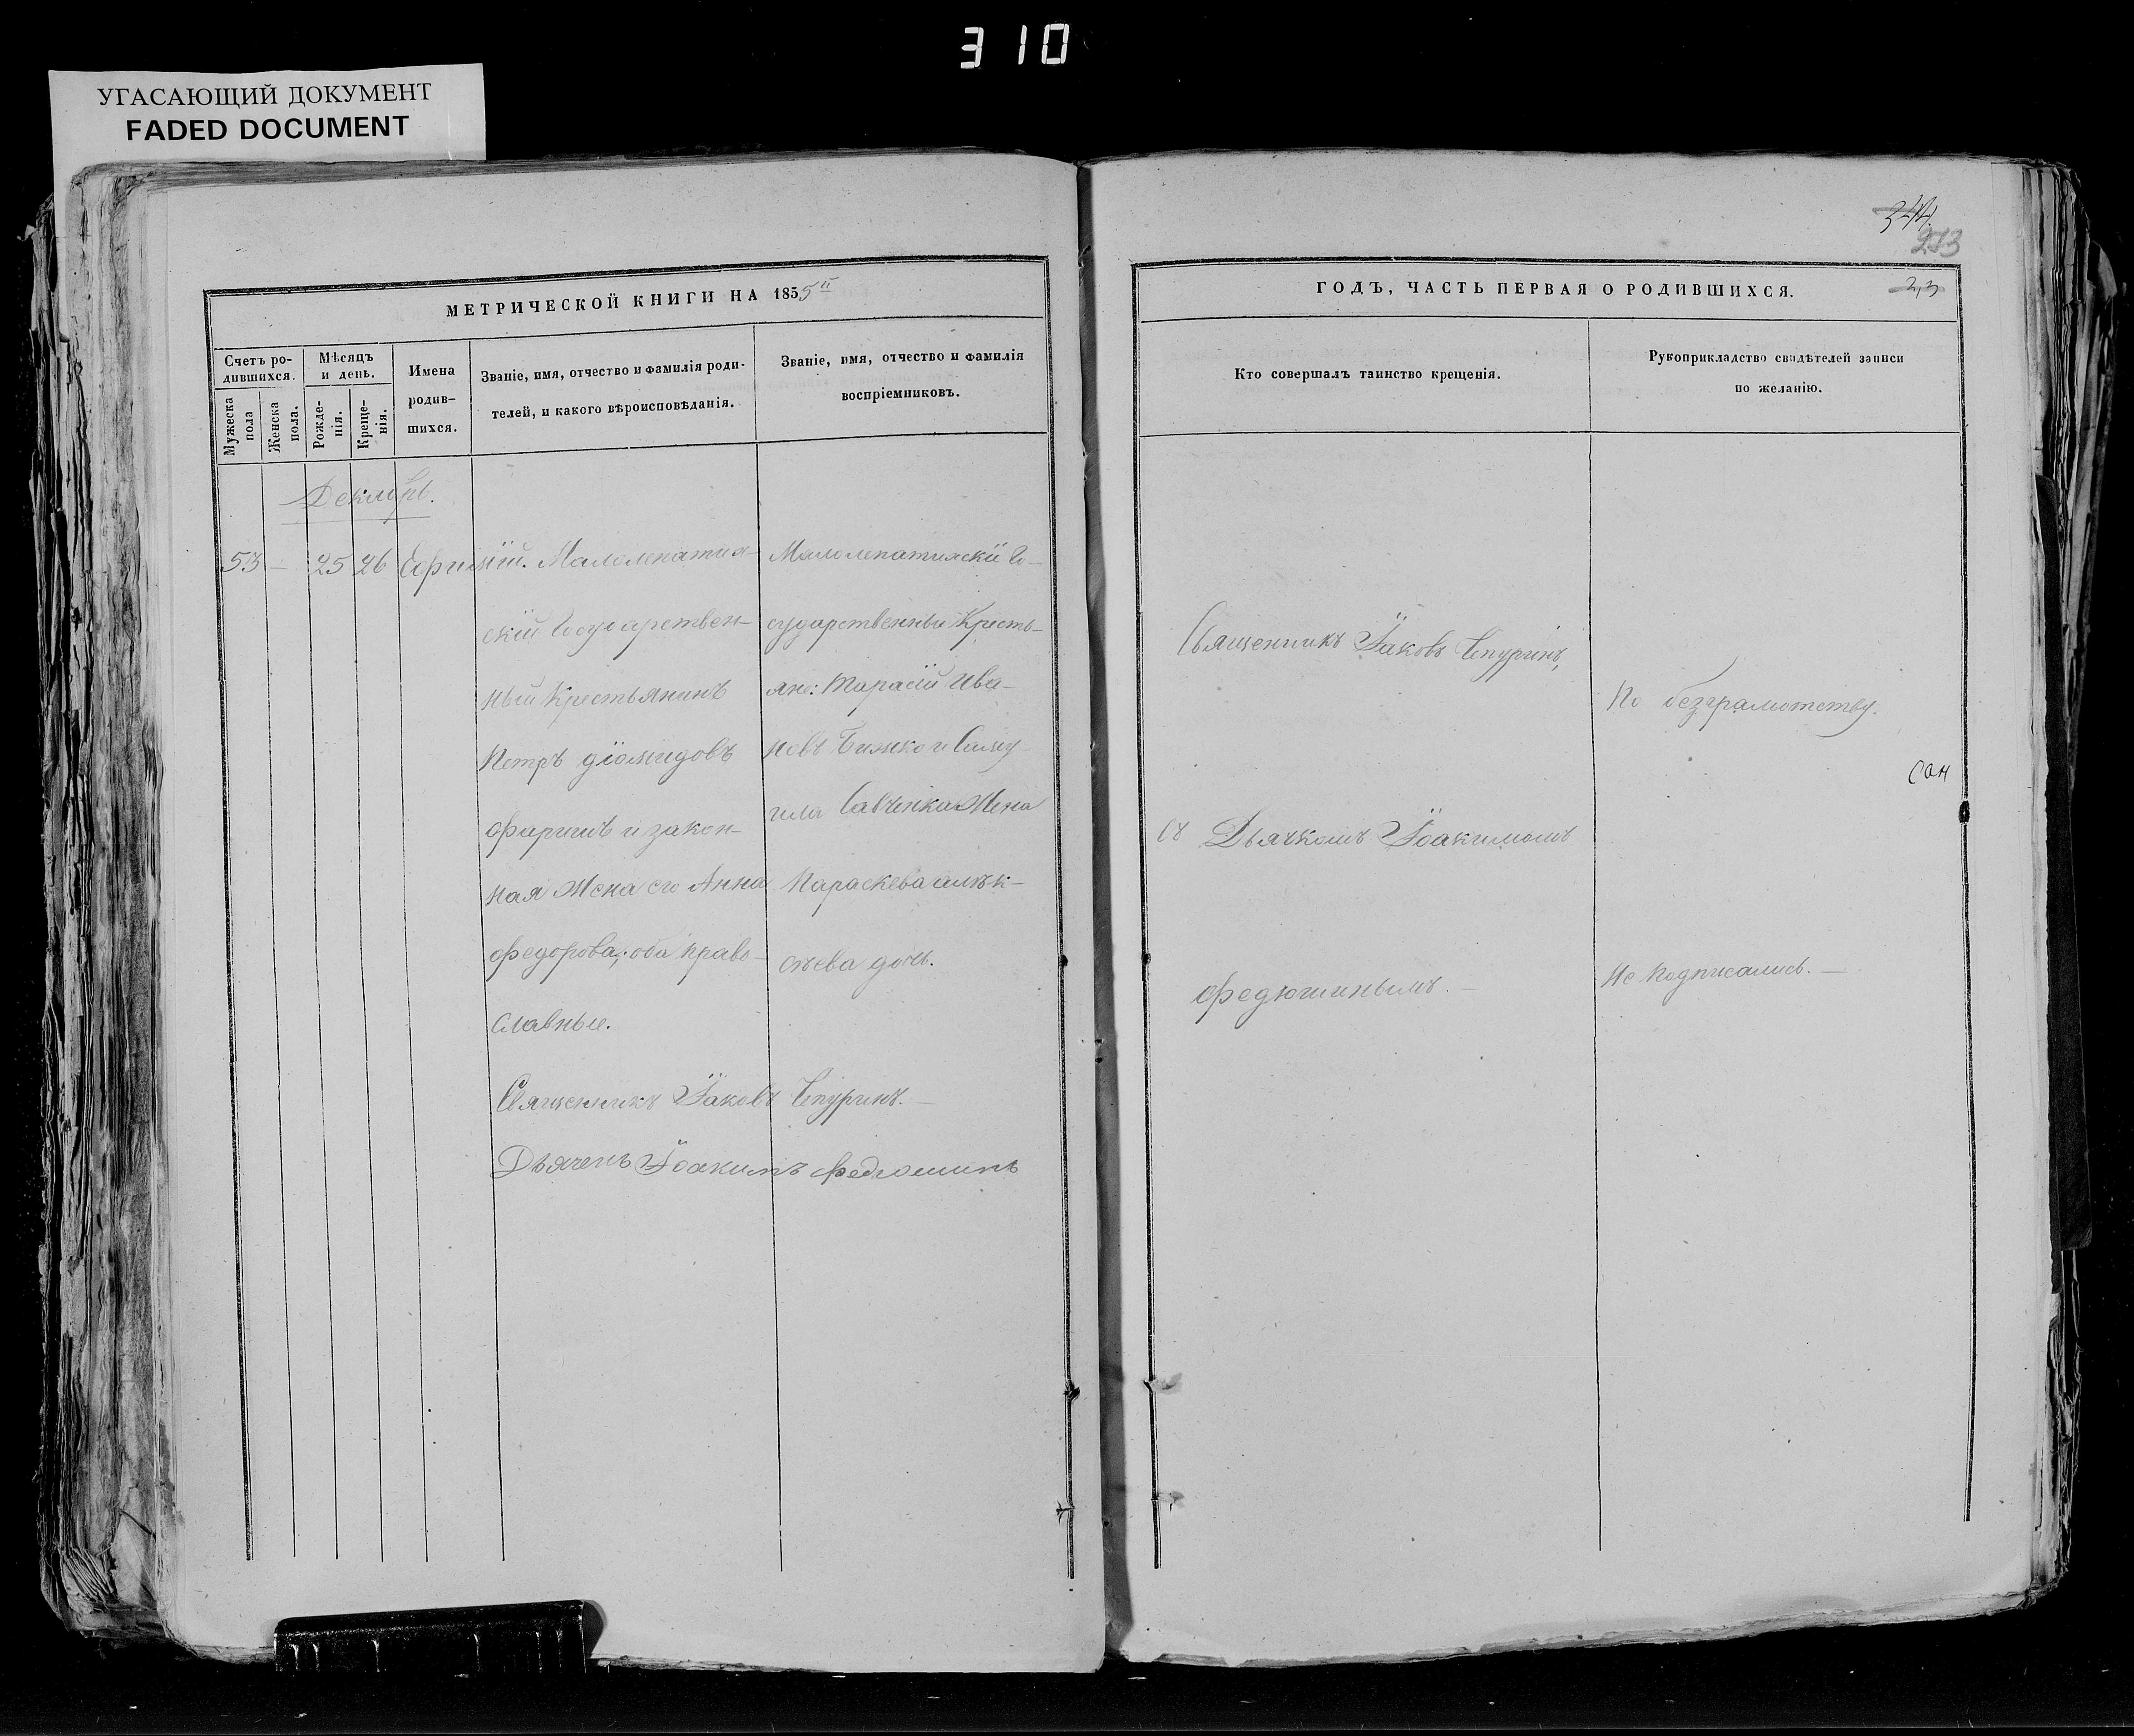 310
УГАСАЮЩИЙ ДОКУМЕНТ
FADED DOCUMENT
МЕТРИЧЕСКОЙ КНИГИ НА 1855й
Счетъ ро-
дившихся.
Мужеска пола
Женска пола.
Мѣсяцъ
и день.
Рожде-
нія.
Креще-
нія.
Имена
родив-
шихся.
Званіе, имя, отчество и фамилія роди-
телей, и какого вѣроисповѣданія.
Званіе, имя, отчество и фамилія
воспріемниковъ.
Декабрь.
53 – 25 26 Ефимій.
Малолепатин-
скій Государствен-
ный Крестьянинъ
Петръ діомидовъ
и закон-
ная Жена его Анна
федорова; оба право-
славные.
Малолепатинскій Го-
сударственный Кресть-
яне: Тарасій Ива-
новъ и Саму-
ила Савченка Жена
Параскева алек-
сѣева дочь.
Священникъ Іаковъ Чепуринъ.
Дьячекъ Іоакимъ Федюшинъ
344.
273
ГОДЪ, ЧАСТЬ ПЕРВАЯ О РОДИВШИХСЯ.
Кто совершалъ таинство крещенія.
Рукоприкладство свидѣтелей записи
по желанію.
Священникъ Іаковъ Чепуринъ,
Съ Дьячкомъ Іоакимомъ
федюшинымъ.
По безграмотству.
Не подписались.